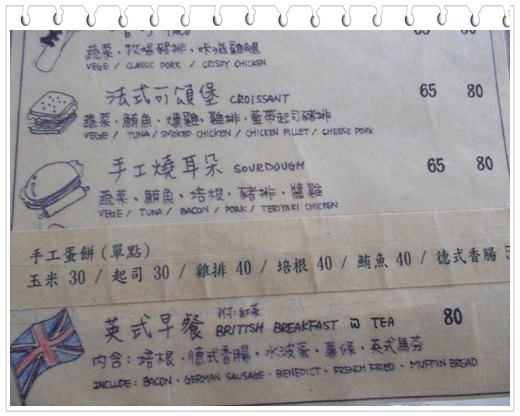 TACO 65 80
蔬菜、牧場豬排、咔滋雞腿
VEGE / CLASSIC PORK / CRISPY CHICKEN
法式可頌堡 CROISSANT 65 80
蔬菜、鮪魚、燻雞、雞排、藍帶起司豬排
VEGE / TUNA / SMOKED CHICKEN / CHICKEN FILLET / CHEESE PORK
手工燒耳朵 SOURDOUGH 65 80
蔬菜、鮪魚、培根、豬排、醬雞
VEGE / TUNA / BACON / PORK / TERIYAKI CHICKEN
手工蛋餅(單點)
玉米 30 / 起司 30 / 雞排 40 / 培根 40 / 鮪魚 40 / 德式香腸
附:紅茶
英式早餐 BRITISH BREAKFAST TEA 80
內含:培根、德式香腸、水波蛋、薯條、英式馬芬
INCLUDE: BACON、GERMAN SAUSAGE、BENEDICT、FRENCH FRIED、MUFFIN BREAD